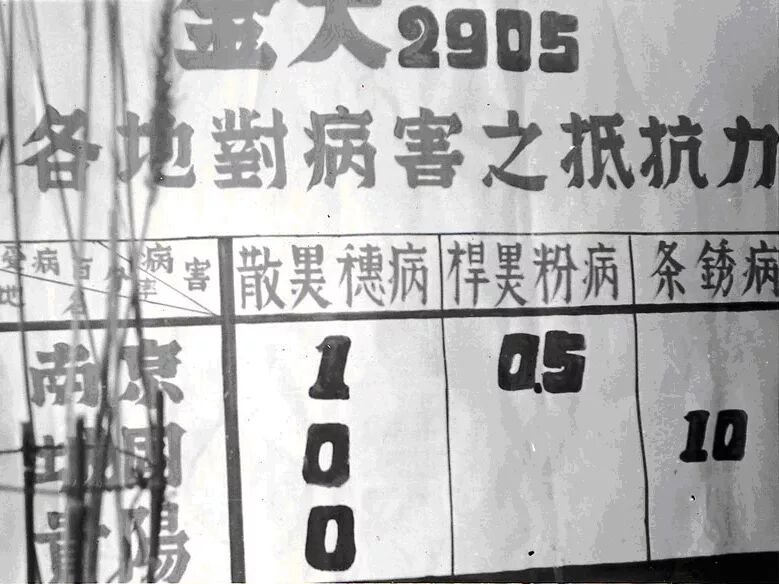 金大2905
各地對病害之抵抗力
受病百分率 病害 地 散黑穗病 桿黑粉病 条銹病
南京 1 0.5
圃 0 10
貴陽 0